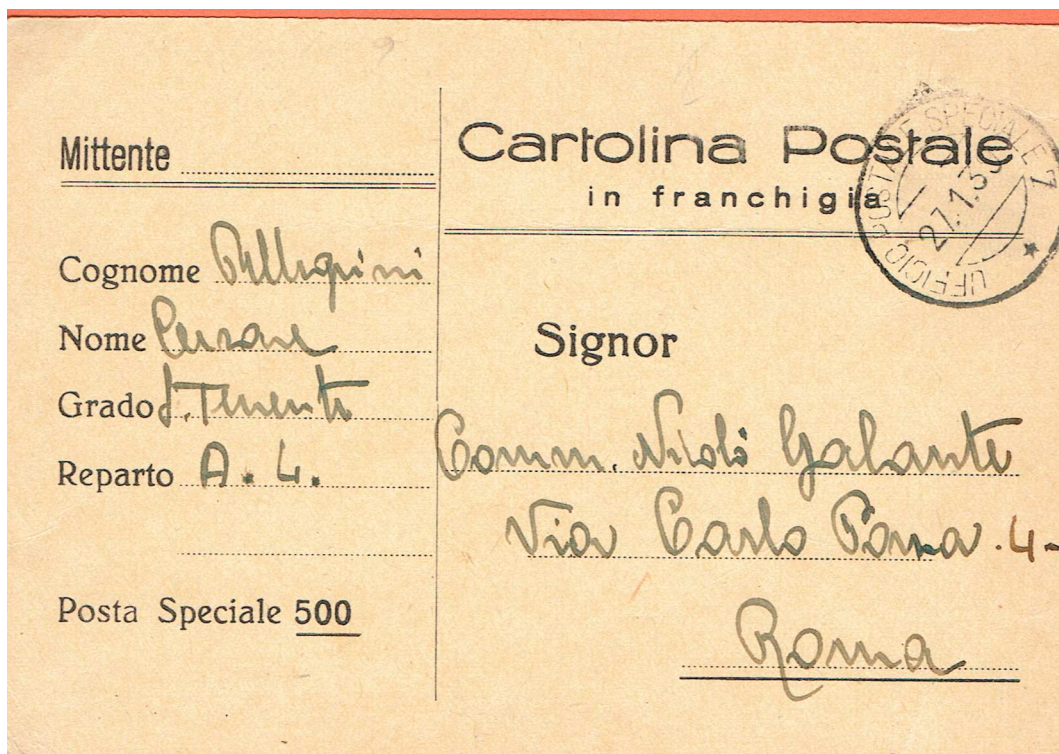 Mittente
Cognome Pellegrini
Nome Cesare
Grado S. Tenente
Reparto A. 4.
Posta Speciale 500
Cartolina Postale
in franchigia
UFFICIO POSTALE SPECIALE 7
27.1.39
Signor
Comm. Nicolò Galante
Via Carlo 4
Roma